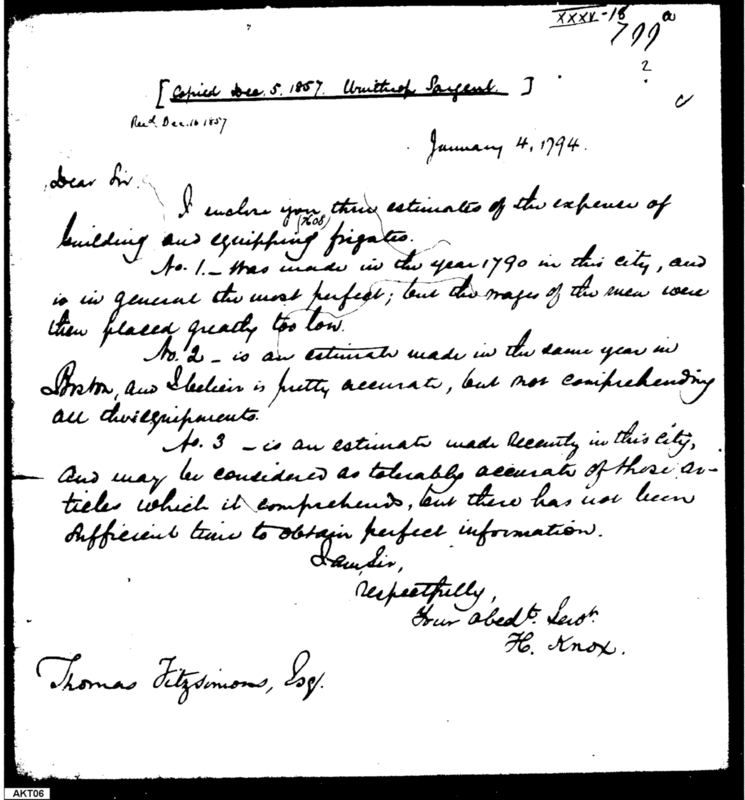 XXXV-18
[Copied Dec. 5. 1857. Winthrop Sargent.]
Recd. Dec. 16 1857
January 4, 1794.
Dear Sir.
I enclose you three estimates of the expense of
building and equipping frigates.
No. 1. – Was made in the year 1790 in this city, and
is in general the most perfect; but the wages of the men were
then placed greatly too low.
No. 2 – is an estimate made in the same year in
Boston, and I believe is pretty accurate, but not comprehending
all the equipments.
No. 3 – is an estimate made recently in this city,
and may be considered as tolerably accurate of those ar-
ticles which it comprehends, but there has not been
sufficient time to obtain perfect information.
I am, Sir,
respectfully,
Your obedt. Servt.
H. Knox.
Thomas Fitzsimons, Esq.
AKT06